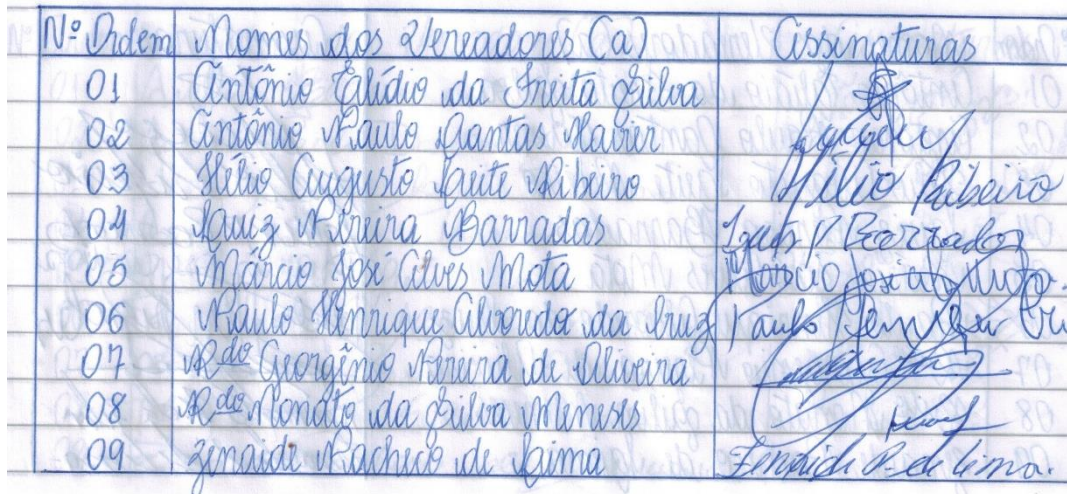 Nº Ordem Nomes dos Vereadores (a) Assinaturas
01 Antônio Elídio da Freita Silva
02 Antônio Paulo Dantas Xavier
03 Hélio Augusto Leite Ribeiro Hélio Ribeiro
04 Luiz Pereira Barradas Luiz P Barradas
05 Márcio José Alves Mota Marcio José Mota
06 Paulo Henrique Alvoredo da Cruz Paulo Henrique
07 Rdo Georgênio Pereira de Oliveira
08 Rdo Nonato da Silva Meneses
09 Zenaide Pacheco de Lima Zenaide P. de Lima.